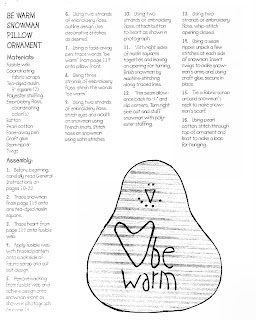 BE WARM
SNOWMAN
PILLOW
ORNAMENT
Materials:
Fusible web
Coordinating
fabric scraps
Tea-dyed muslin
Polyester stuffing
Embroidery floss,
coordinating
color(s)
Button
Pearl cotton
Fade-away pen
Craft glue
Seam ripper
Twigs
Assembly:
1. Before beginning,
carefully read General
Instructions on
pages
2. Trace snowman
from page 119 onto
tea-dyed muslin
square.
3. Trace heart from
page 119 onto fusible
web.
4. Apply fusible web
with traced pattern
onto back side of
fabric scrap and cut
out design.
5. Remove backing
from fusible web and
adhere design onto
snowman front as
shown in photograph
6. Using two strands
of embroidery floss,
outline design with
decorative stitches
as desired.
7. Using a fade-away
pen, trace words "be
warm" from page 119
onto pillow front.
8. Using three
strands of embroidery
floss, stitch the words
"be warm".
9. Using two strands
of embroidery floss,
stitch eyes and mouth
on snowman using
French knots. Stitch nose
on snowman using
satin stitches.
10. Using two
strands of embroidery
floss, attach button
to heart as shown in
photograph.
11. With right sides
of muslin squares
together and leaving
an opening for turning,
stitch snowman by
machine-stitching
along traced lines.
12. Trim seam allow-
ance back to
and
clip corners. Turn right
side out and stuff
snowman with poly-
ester stuffing.
13. Using two
strands of
embroidery floss,
whip stitch
opening closed.
14. Using a seam
ripper, unpick a few
stitches at each side
of snowman. Insert
twigs to make snow-
man's arms and using
craft glue, secure in
place.
15. Tie a fabric scrap
around snowman's
neck to make snow-
man's scarf.
16. Using pearl
cotton, stitch through
top of ornament and
knot to make a loop
for hanging.
be
warm